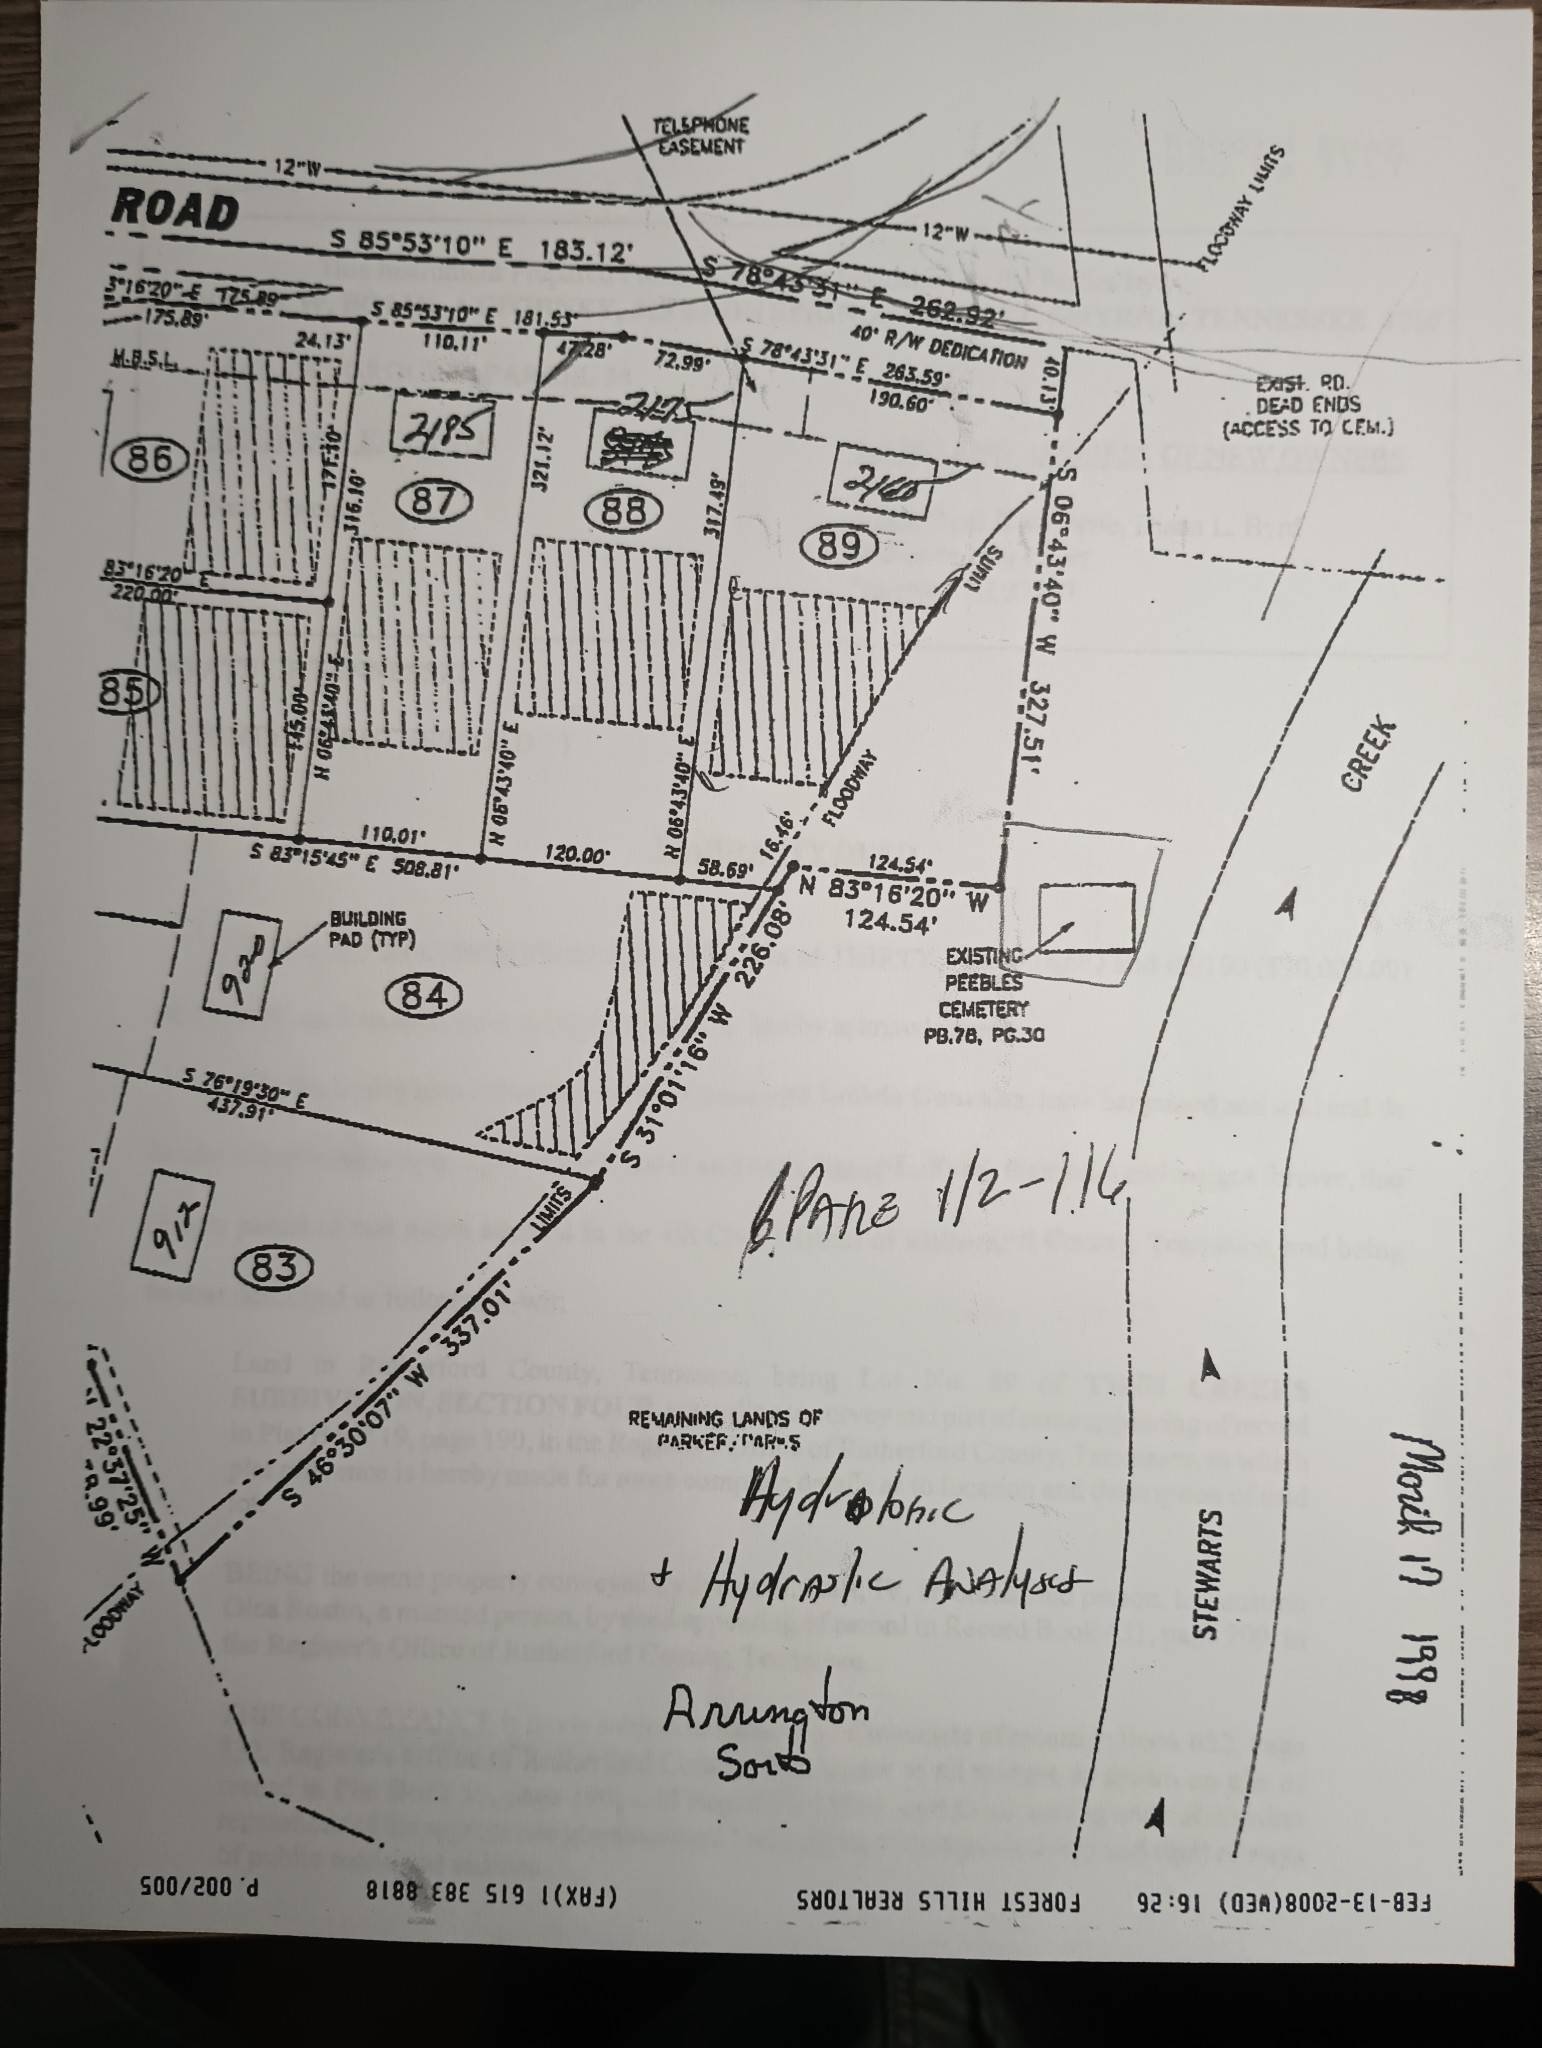 TELEPHONE
EASEMENT
12"W
FLOODWAY LIMITS
ROAD
S 85°53'10" E 183.12'
12"W
S 78°43'31" E 262.92'
40' R/W DEDICATION
3°16'20" E 175.89'
175.89'
S 85°53'10" E 181.53'
24.13'
110.11'
47.28'
72.99'
S 78°43'31" E 263.59'
190.60'
40.13'
EXIST. RD.
DEAD ENDS
(ACCESS TO CEM.)
M.B.S.L.
86
171.10'
316.10'
2185
87
321.12'
2175
88
317.49'
2160
89
S 06°43'40" W 327.51'
LIMITS
83°16'20" E
220.00'
85
145.00'
N 06°43'40" E
N 06°43'40" E
N 06°43'40" E
FLOODWAY
CREEK
110.01'
S 83°15'45" E 508.81'
120.00'
58.69'
16.46'
124.54'
N 83°16'20" W
124.54'
BUILDING
PAD (TYP)
920
84
S 31°01'16" W 226.08'
EXISTING
PEEBLES
CEMETERY
PB.78, PG.30
S 76°19'30" E
437.91'
912
83
LIMITS
1/2-1.16
S 46°30'07" W 337.01'
REMAINING LANDS OF
22°37'25" W
LOODWAY
+ Hydraslic Analyses
STEWARTS
1998
Arrington
FEB-13-2008(WED) 16:26 FOREST HILLS REALTORS (FAX)1 615 383 8818 P. 002/005